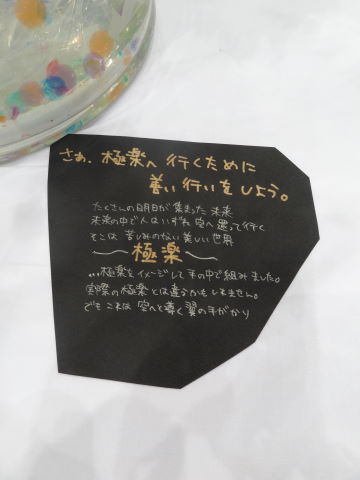 さぁ、極楽へ行くために
善い行いをしよう。
たくさんの明日が集まった未来
未来の中で人はいずれ空へ還って行く
そこは苦しみのない美しい世界
〜極楽〜
…極楽をイメージして手の中で組みました。
実際の極楽とは違うかもしれません。
でもこれは空へと導く翼の手がかり